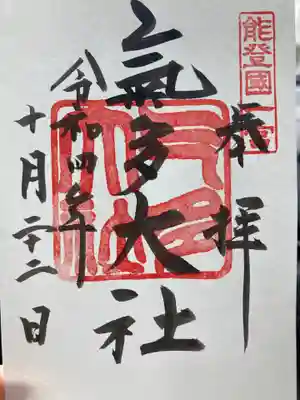 能登國一宮
奉拝
氣多大社
令和四年
十月二十二日